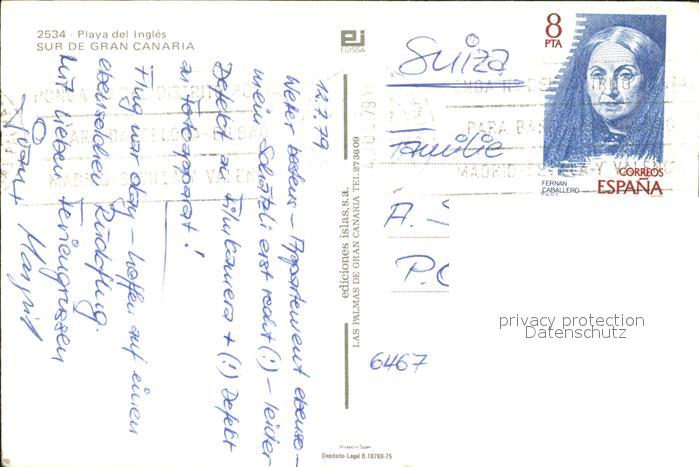 2534 - Playa del Inglés
SUR DE GRAN CANARIA
12.7.79
Wetter bestens – Appartement ebenso –
mein Schätzli erst recht (!) – leider
Defekt an Filmkamera + (!) Defekt
an Fotoapparat!
Flug war okay – hoffen auf einen
ebensolchen Rückflug.
Mit lieben Feriengrüssen
Margrit
EDISSA
ediciones islas, s.a.
LAS PALMAS DE GRAN CANARIA TEL. 273609
Printed in Spain
Depósito Legal B. 18769-75
Suiza
Familie
A.
P.
6467
8
PTA
FERNAN
CABALLERO
CORREOS
ESPAÑA
PARA BARCELONA-BILBAO
MADRID-SEVILLA Y VALEN
PARA BA
MADRID-SEVILLA Y VALEN
privacy protection
Datenschutz